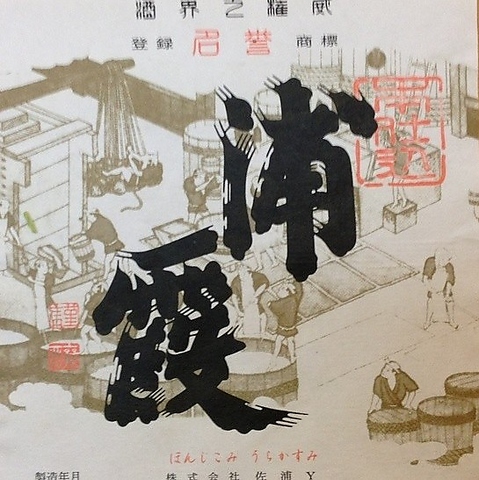 酒界之權威
登録 名譽 商標
浦
霞
ほんじこみ うらかすみ
製造年月 株式会社佐浦 Y